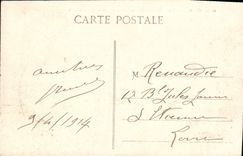 CARTE POSTALE
amitiés
9/4/1914
M Renaudie
12 Bd Jules Janin
St Etienne
Loire